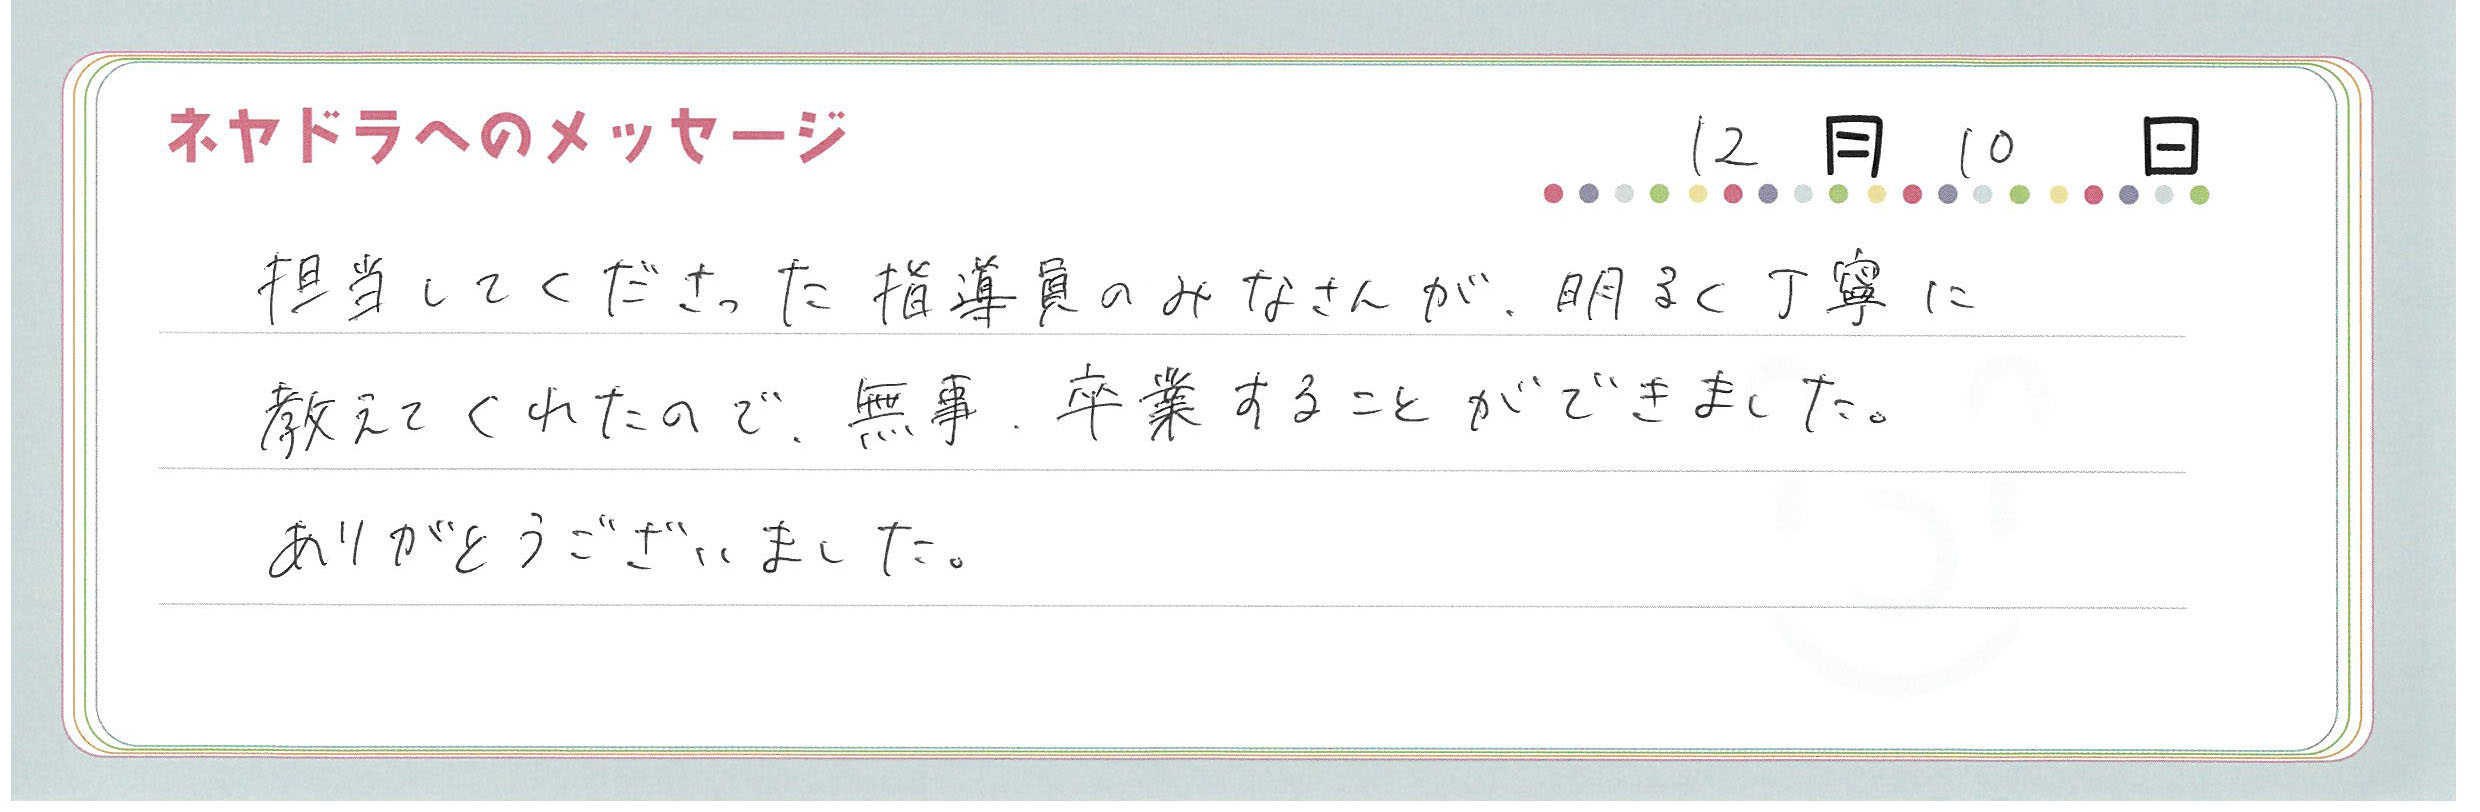 ネヤドラへのメッセージ
12月10日
担当してくださった指導員のみなさんが、明るく丁寧に
教えてくれたので、無事、卒業することができました。
ありがとうございました。